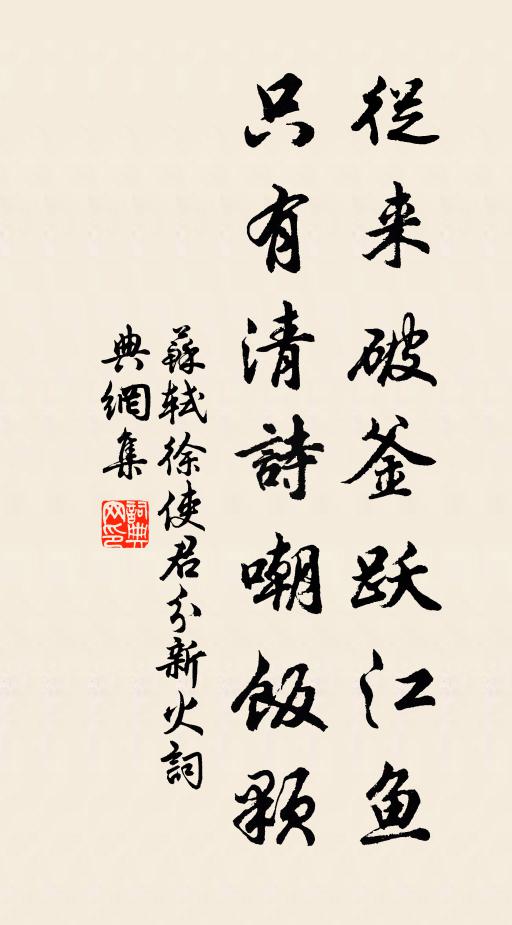 從来破釜跃江鱼
只有清詩嘲飯顆
蘇軾徐使君分新火詞
典網集
詞典网印